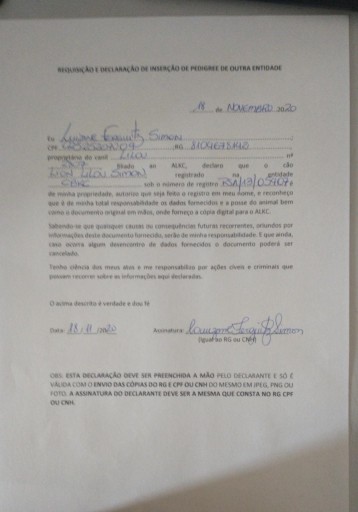 REQUISIÇÃO E DECLARAÇÃO DE INSERÇÃO DE PEDIGREE DE OUTRA ENTIDADE
18 de NOVEMBRO 2020
Eu Simon
CPF RG
proprietário do canil LILOU nº
filiado ao ALKC, declaro que o cão
LILOU SIMON registrado na entidade
CBKC sob o número de registro
de minha propriedade, autorizo que seja feito o registro em meu nome, e reconheço
que é de minha total responsabilidade os dados fornecidos e a posse do animal bem
como o documento original em mãos, onde forneço a cópia digital para o ALKC.
Sabendo-se que quaisquer causas ou consequências futuras recorrentes, oriundos por
informações deste documento fornecido, serão de minha responsabilidade. E que ainda,
caso ocorra algum desencontro de dados fornecidos o documento poderá ser
cancelado.
Tenho ciência dos meus atos e me responsabilizo por ações cíveis e criminais que
possam recorrer sobre as informações aqui declaradas.
O acima descrito é verdade e dou fé
Data: 18/11/2020 Assinatura: Simon
(Igual ao RG ou CNH)
OBS: ESTA DECLARAÇÃO DEVE SER PREENCHIDA A MÃO PELO DECLARANTE E SÓ É
VÁLIDA COM O ENVIO DAS CÓPIAS DO RG E CPF OU CNH DO MESMO EM JPEG, PNG OU
FOTO. A ASSINATURA DO DECLARANTE DEVE SER A MESMA QUE CONSTA NO RG CPF
OU CNH.